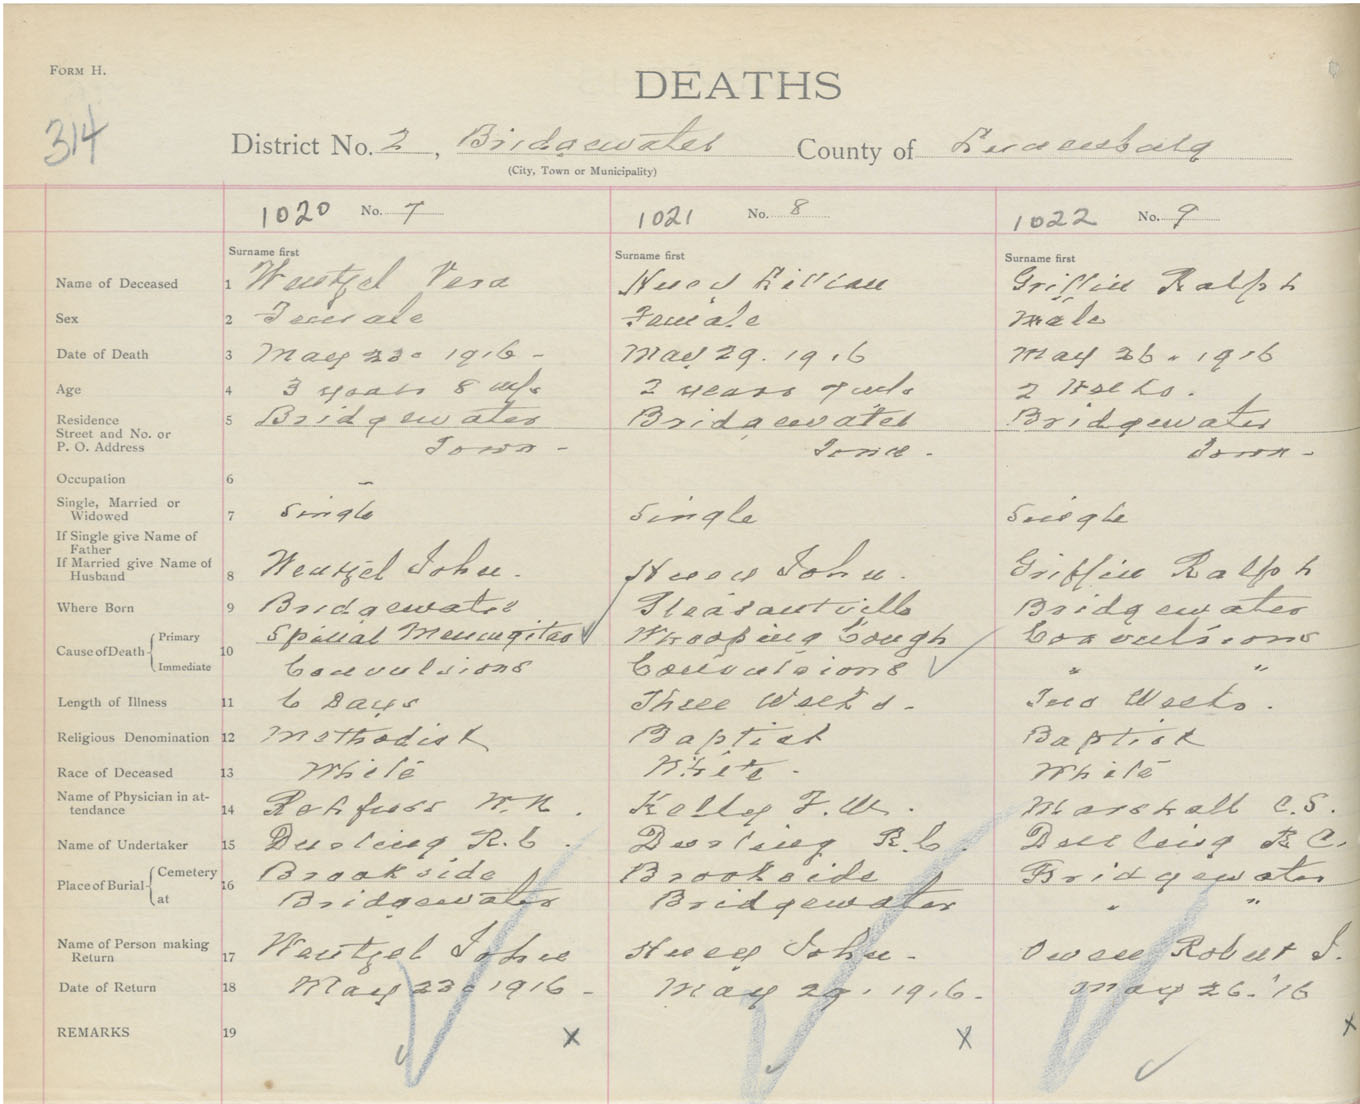 FORM H.
DEATHS
314
District No. 2, Bridgewater County of Lunenburg
(City, Town or Municipality)
1020 No. 7 1021 No. 8 1022 No. 9
Surname first Surname first Surname first
Name of Deceased 1 Wentzel Vera Lillian Griffin Ralph
Sex 2 Female Female Male
Date of Death 3 May 23. 1916 - May 29. 1916 May 26. 1916
Age 4 3 years 8 mfs 2 years 7 mfs 2 Weeks.
Residence 5 Bridgewater Bridgewater Bridgewater
Street and No. or
P. O. Address Town - Town - Town -
Occupation 6 -
Single, Married or
Widowed 7 Single Single Single
If Single give Name of
Father
If Married give Name of
Husband 8 Wentzel John. John. Griffin Ralph
Where Born 9 Bridgewater Pleasantville Bridgewater
Cause of Death Primary 10 Spinal Meningitas Whooping Cough Convulsions
Immediate Convulsions Convulsions " "
Length of Illness 11 6 Days Three Weeks. Two Weeks.
Religious Denomination 12 Methodist Baptist Baptist
Race of Deceased 13 White White. White
Name of Physician in at-
tendance 14 Rehfuss W. N. Kelley F. W. Marshall C. S.
Name of Undertaker 15 Dursling R. C. Dursling R. C. Dursling R C.
Place of Burial Cemetery 16 Brookside Brookside Bridgewater
at Bridgewater Bridgewater " "
Name of Person making
Return 17 Wentzel John John. Owen Robert J.
Date of Return 18 May 23. 1916 - May 29. 1916. May 26. '16
REMARKS 19 x x x